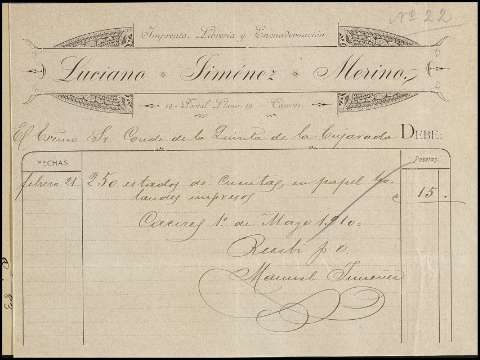 Nº 22
Imprenta, Librería y Encuadernación
Luciano Jiménez Merino,
19 - Portal Llano, 19 - Cáceres
El Excmo Sr Conde de la Quinta de la Enjarada DEBE:
FECHAS Pesetas
febrero 21 250 estados de cuentas, en papel ho- 15
landes impresos
Cáceres 1º de Mayo 1910=
Recibí p o.
Manuel Jimenez